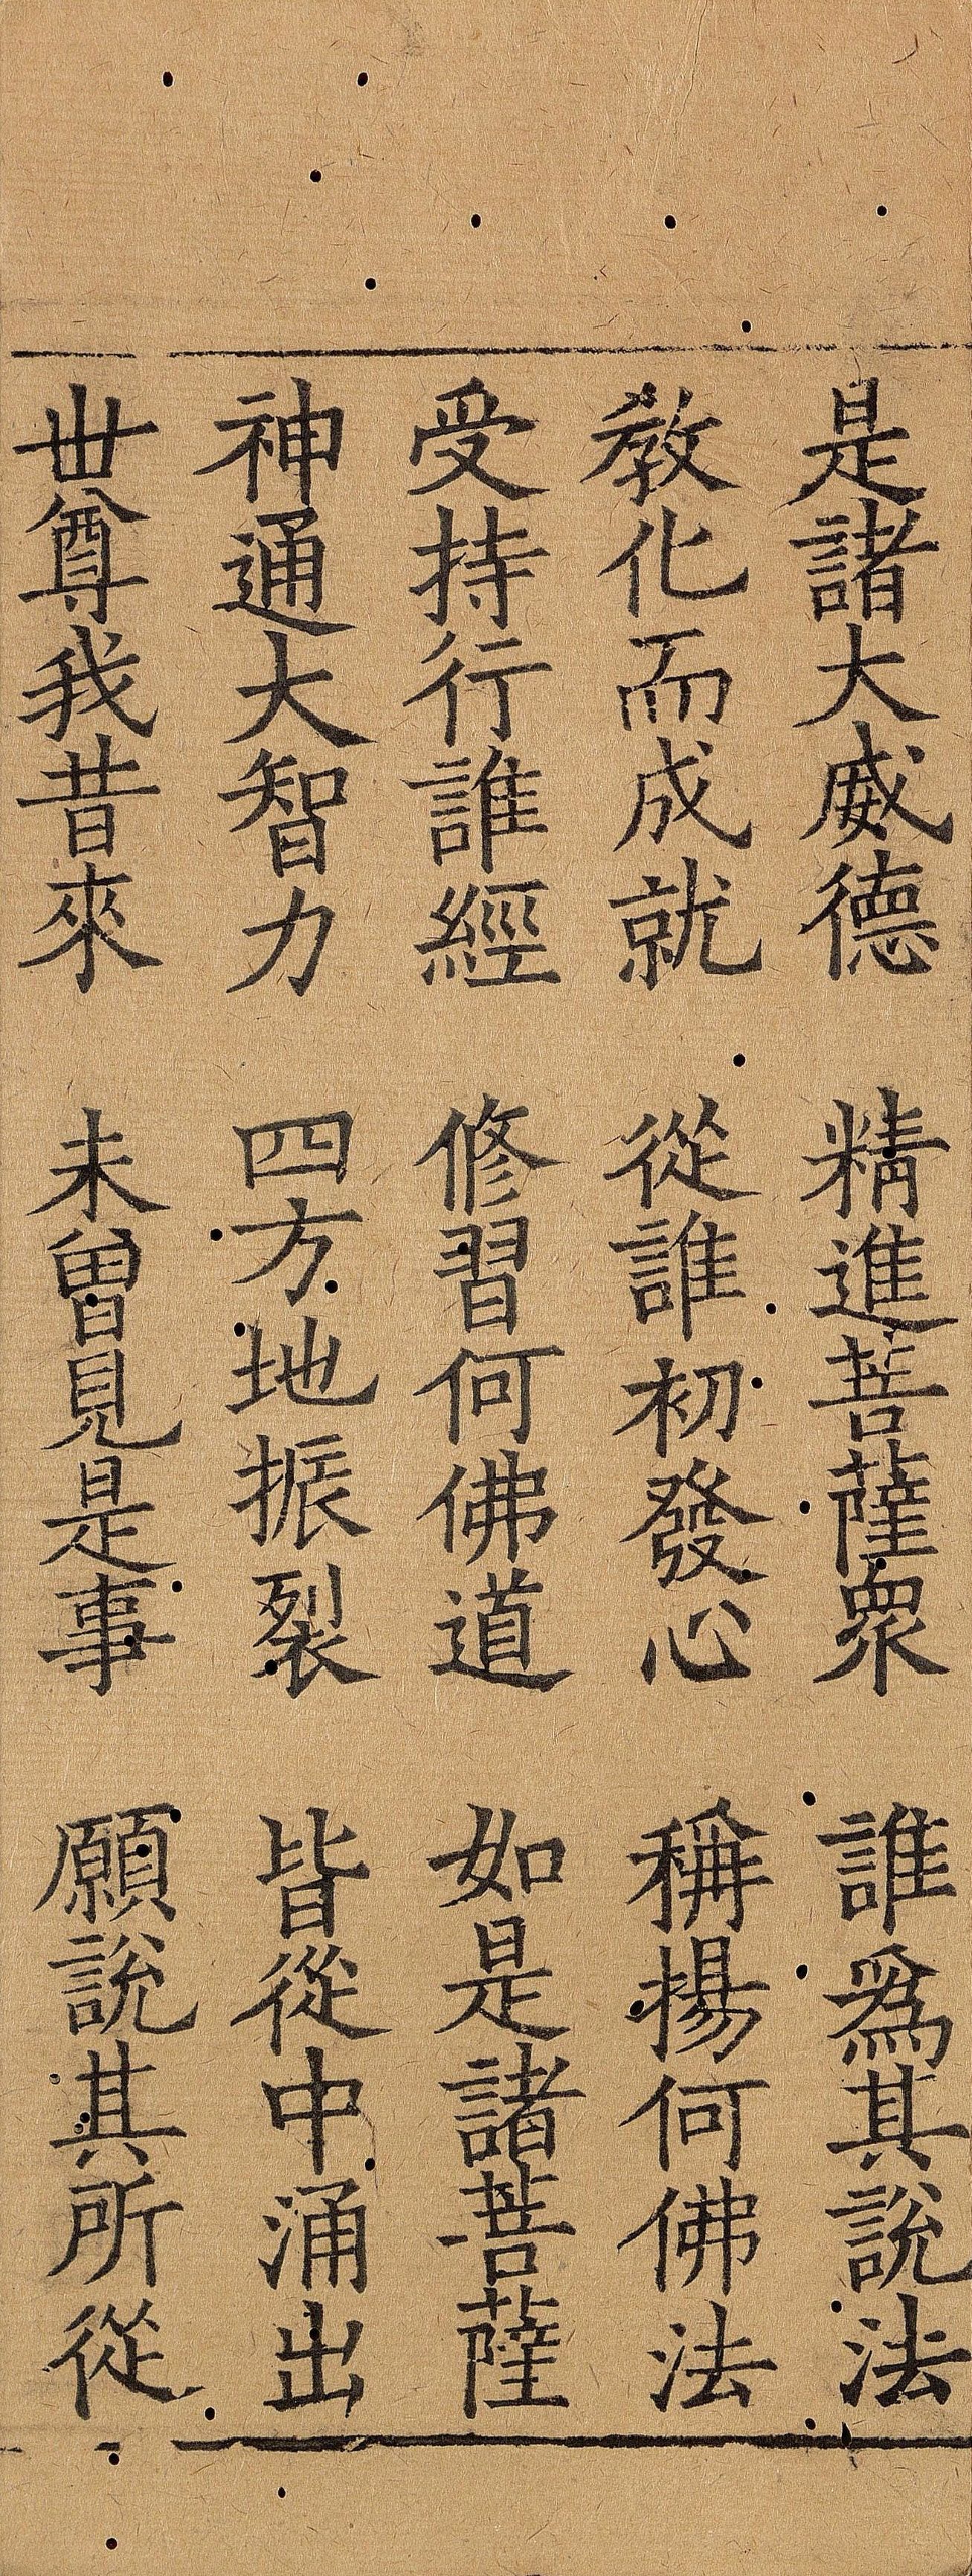 是諸大威德　精進菩薩衆　誰爲其說法
敎化而成就　從誰初發心　稱揚何佛法
受持行誰經　修習何佛道　如是諸菩薩
神通大智力　四方地振裂　皆從中涌出
世尊我昔來　未曾見是事　願說其所從